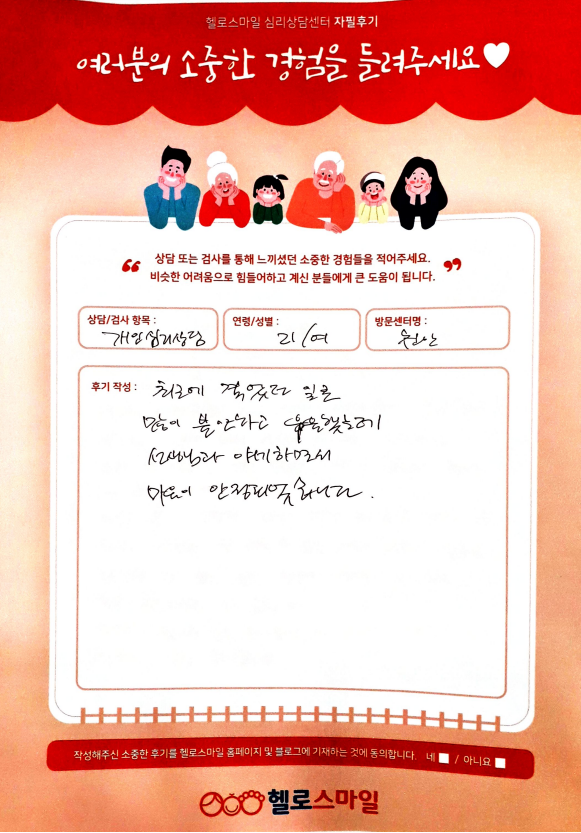 헬로스마일 심리상담센터 자필후기
여러분의 소중한 경험을 들려주세요
상담 또는 검사를 통해 느끼셨던 소중한 경험들을 적어주세요.
비슷한 어려움으로 힘들어하고 계신 분들에게 큰 도움이 됩니다.
상담/검사 항목 : 개인심리상담
연령/성별 : 21/여
방문센터명 : 천안
후기 작성 : 최근에 겪었던 일로
많이 불안하고 우울했는데
선생님과 얘기하면서
마음이 안정되었습니다.
작성해주신 소중한 후기를 헬로스마일 홈페이지 및 블로그에 기재하는 것에 동의합니다. 네 / 아니요
헬로스마일